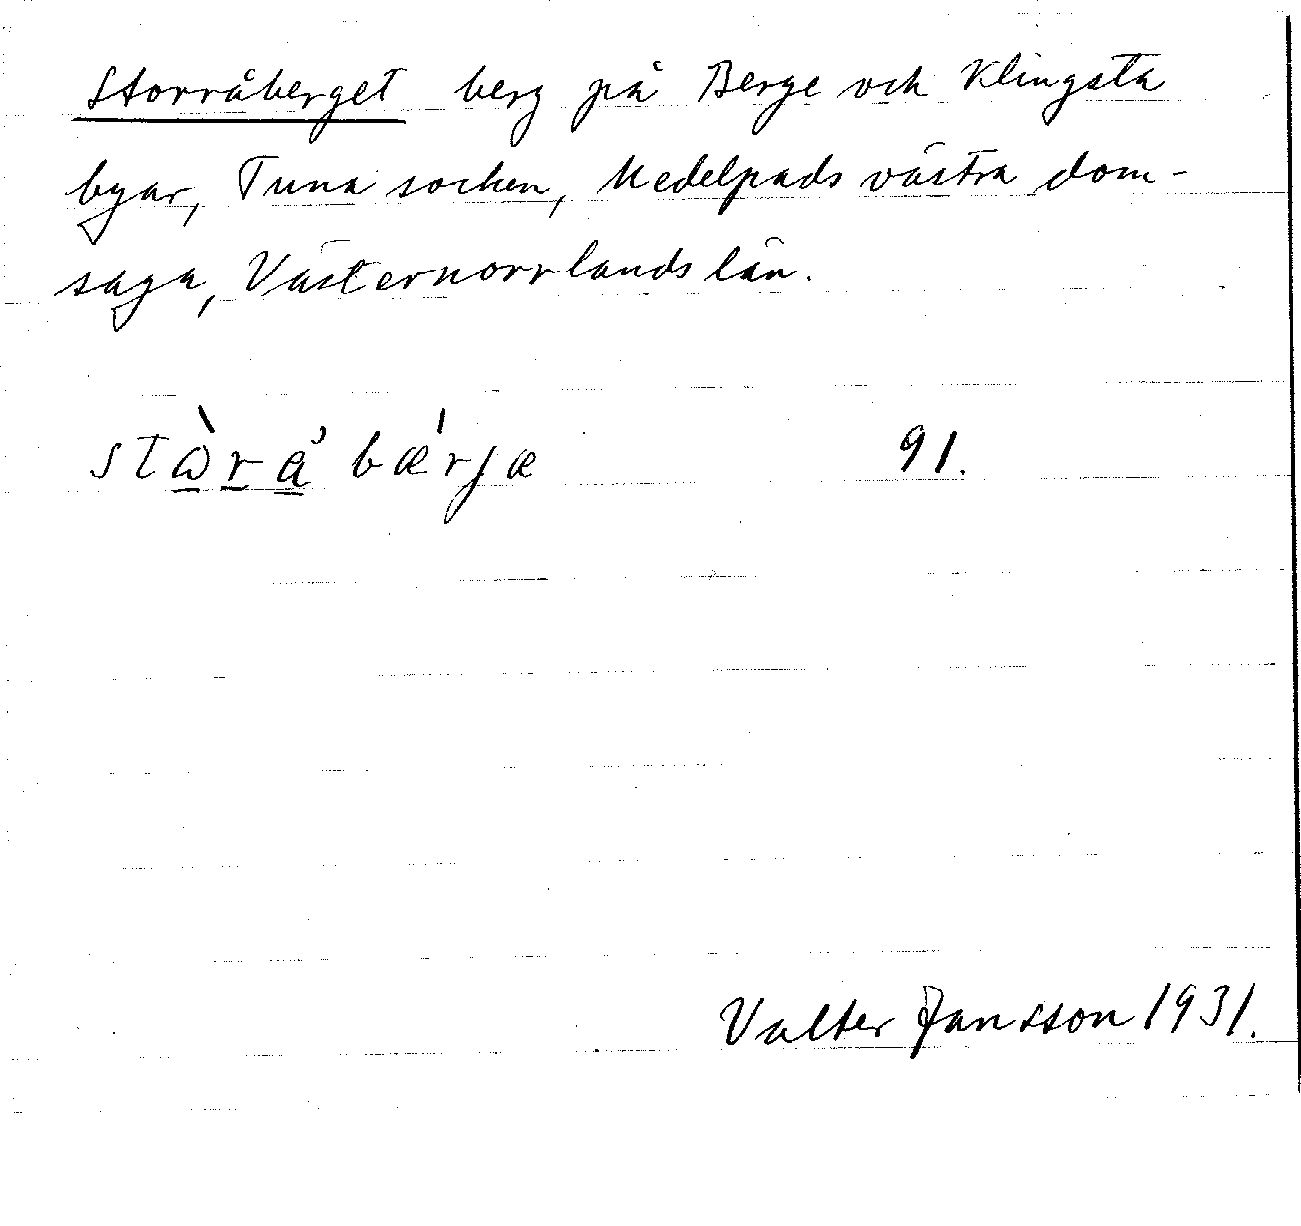 Storråberget berg på Berge och Klingsta
byar, Tuna socken, Medelpads västra dom-
saga, Västernorrlands län.
stὼrå bǽrjæ 91.
Valter Jansson 1931.